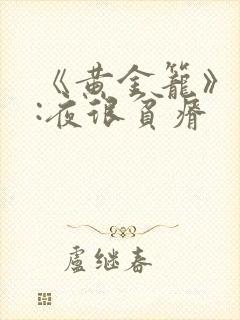 《黄金籠》
:夜很貧瘠
盧继春